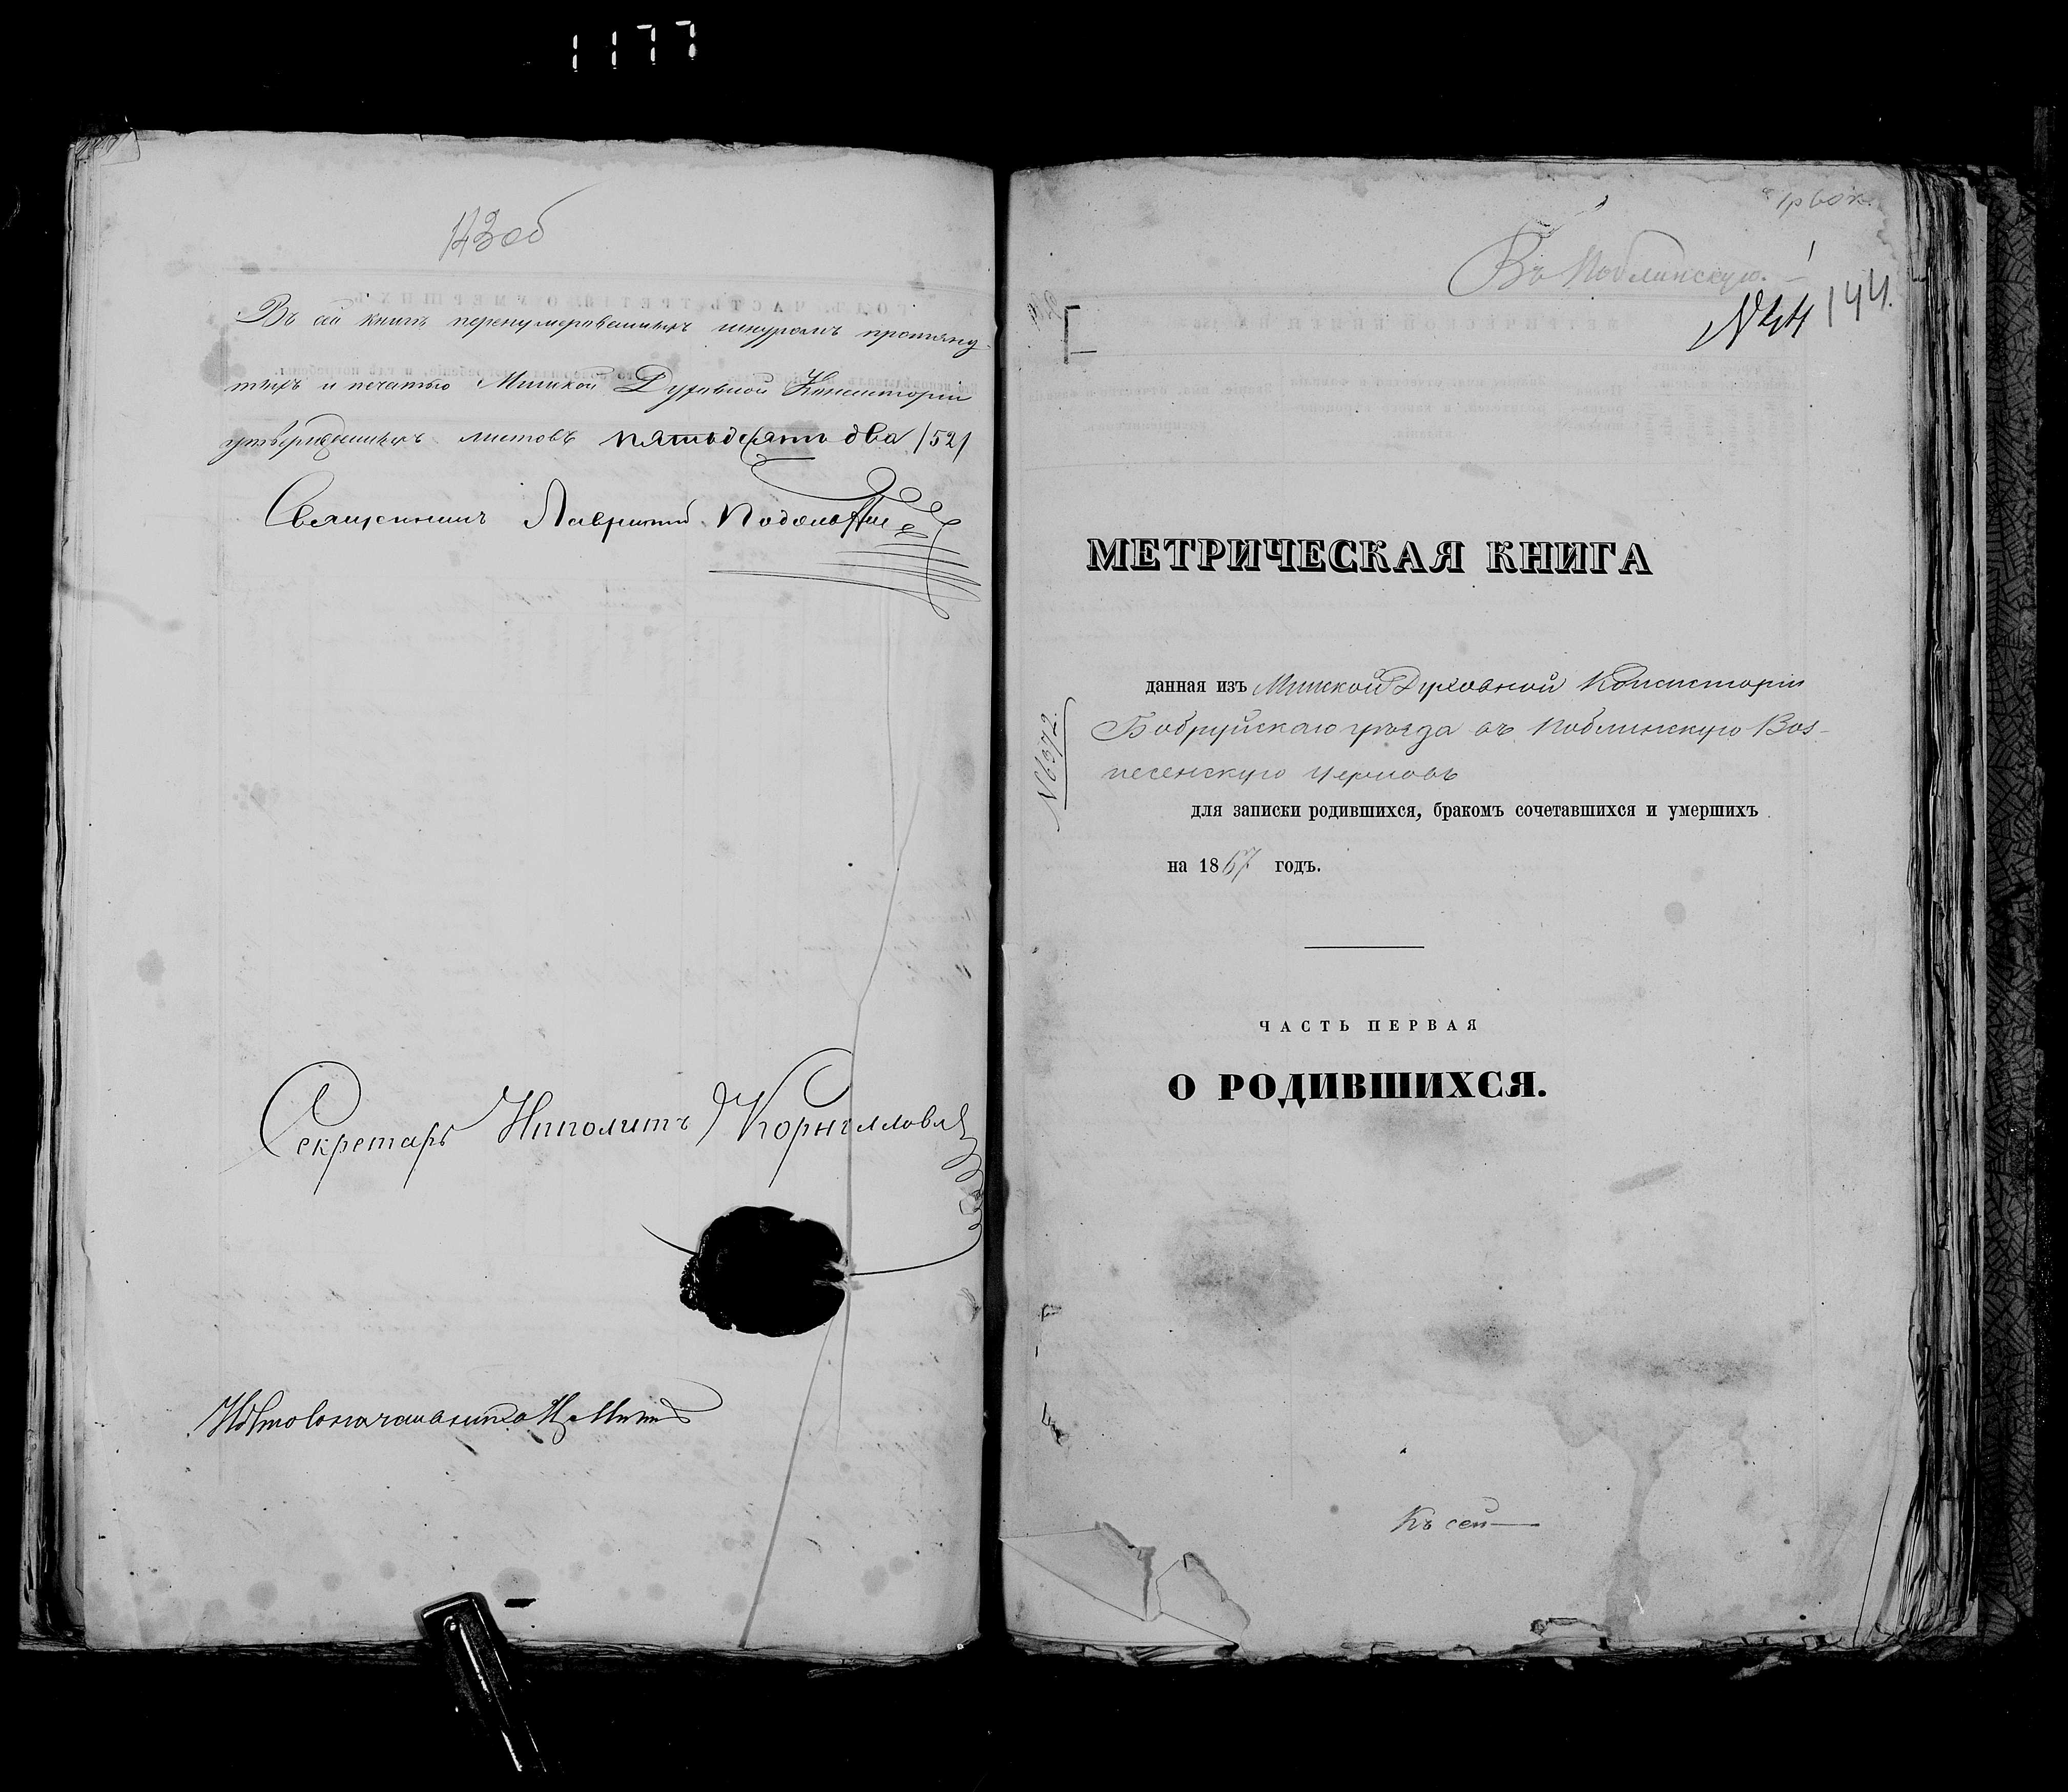 1177
143об
Въ сей книгѣ перенумерованныхъ шнуромъ протяну-
тыхъ и печатью Минской Духовной Консисторіи
утвержденныхъ листовъ пятьдесятъ два /52/
Священникъ Лаврентій
Секретарь Иполитъ Корниловъ
1р 60 к.
Въ Поблинскую.
№44 144.
МЕТРИЧЕСКАЯ КНИГА
данная изъ Минской Духовной Консисторіи
№6372.
Бобруйскаго уѣзда въ Поблинскую Воз-
несенскую Церковь
для записки родившихся, бракомъ сочетавшихся и умершихъ
на 1867 годъ.
ЧАСТЬ ПЕРВАЯ
О РОДИВШИХСЯ.
Къ сей